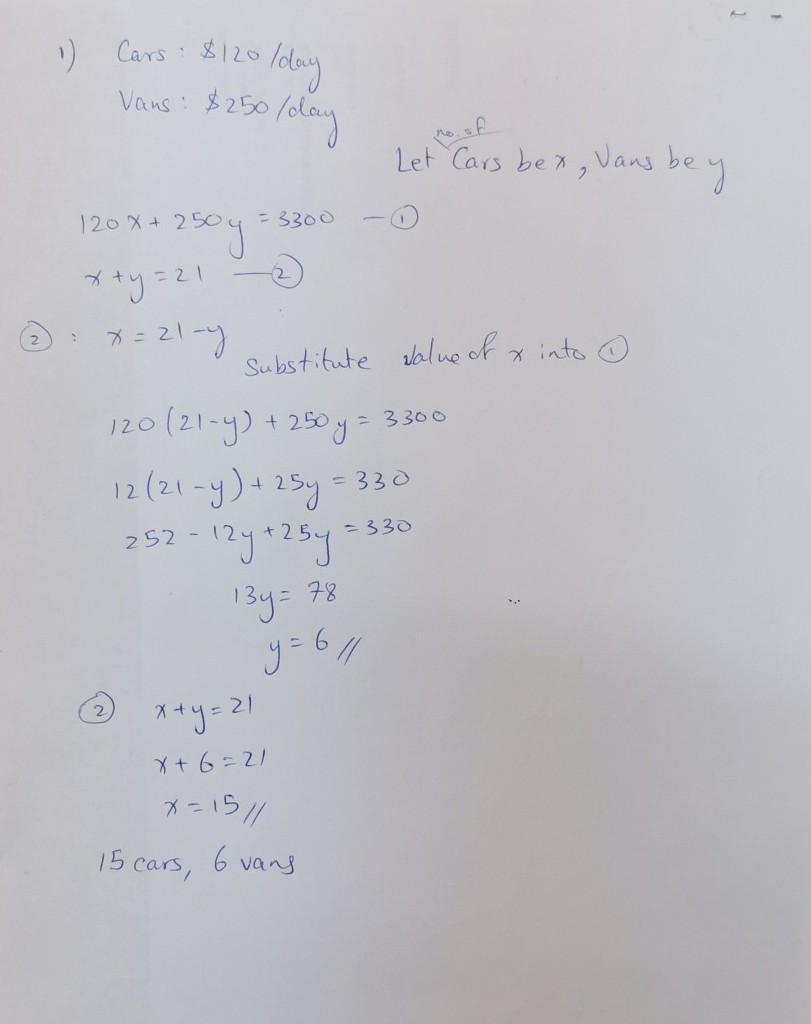 1) Cars : $120/day
Vans : $250/day
no. of
Let Cars be x, Vans be y
120x + 250y = 3300 — ①
x + y = 21 — ②
② : x = 21 - y
Substitute value of x into ①
120 (21-y) + 250y = 3300
12 (21-y) + 25y = 330
252 - 12y + 25y = 330
13y = 78
y = 6 //
② x + y = 21
x + 6 = 21
x = 15 //
15 cars, 6 vans